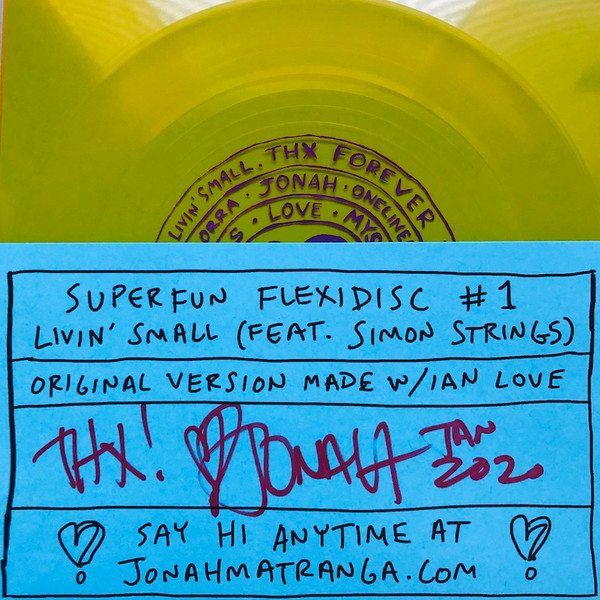 LIVIN' SMALL. THX FOREVER
ORRA · JONAH · ONELINE
S · LOVE · MYS
SUPERFUN FLEXIDISC #1
LIVIN' SMALL (FEAT. SIMON STRINGS)
ORIGINAL VERSION MADE W/IAN LOVE
THX! JONAH JAN
2020
SAY HI ANYTIME AT
JONAHMATRANGA.COM